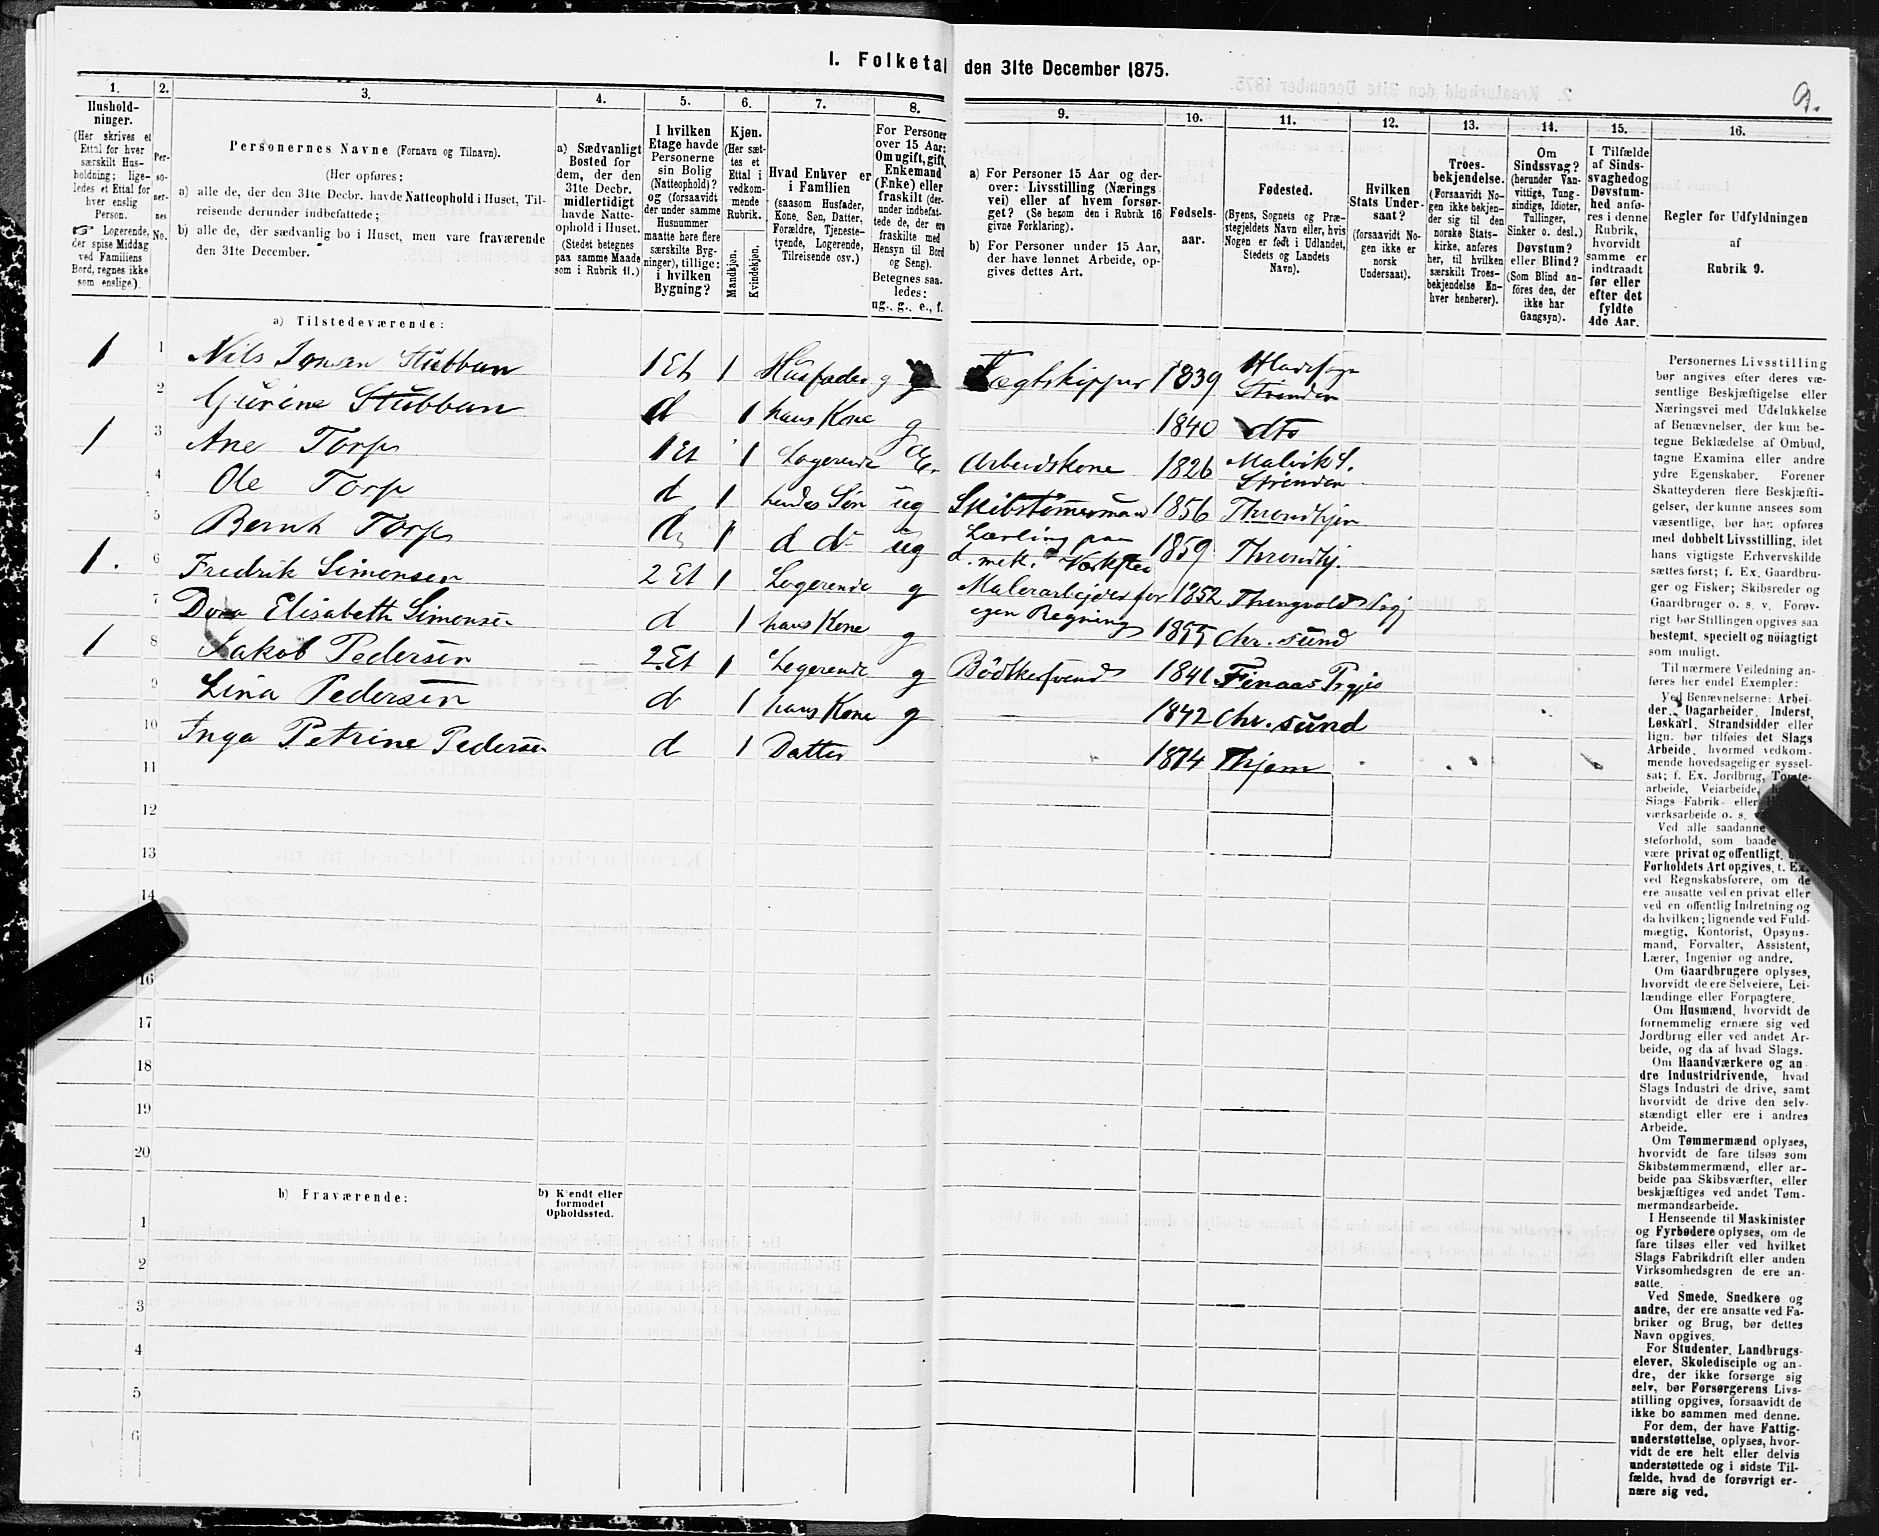 I. Folketal den 31te December 1875.
9.
1.
Hushold-
ninger.
(Her skrives et
Ettal for hver
særskilt Hus-
holdning; lige-
ledes et Ettal for
hver enslig
Person.
☞ Logerende,
der spise Middag
ved Familiens
Bord, regnes ikke
som enslige).
2.
Per-
so-
ner-
nes
No.
3.
Personernes Navne (Fornavn og Tilnavn).
(Her opføres:
a) alle de, der den 31te Decbr. havde Natteophold i Huset, Til-
reisende derunder indbefattede;
b) alle de, der sædvanlig bo i Huset, men vare fraværende
den 31te December.
4.
a) Sædvanligt
Bosted for
dem, der den
31te Decbr.
midlertidigt
havde Natte-
ophold i Huset.
(Stedet betegnes
paa samme Maade
som i Rubrik 11.)
5.
I hvilken
Etage havde
Personerne
sin Bolig
(Natteophold)?
og (forsaavidt
der under samme
Husnummer
maatte høre flere
særskilte Byg-
ninger), tillige:
i hvilken
Bygning?
6.
Kjøn.
(Her sæt-
tes et
Ettal i
vedkom-
mende
Rubrik.
Mandkjøn.
Kvindekjøn.
7.
Hvad Enhver er
i Familien
(saasom Husfader,
Kone, Søn, Datter,
Forældre, Tjeneste-
tyende, Logerende,
Tilreisende osv.)
8.
For Personer
over 15 Aar:
Om ugift, gift,
Enkemand
(Enke) eller
fraskilt (der-
under indbefat-
tede de, der ere
fraskilte med
Hensyn til Bord
og Seng).
Betegnes saa-
ledes:
ug., g., e., f.
9.
a) For Personer 15 Aar og der-
over: Livsstilling (Nærings
vei) eller af hvem forsør-
get? (Se herom den i Rubrik 16
givne Forklaring).
b) For Personer under 15 Aar,
der have lønnet Arbeide, op-
gives dettes Art.
10.
Fødsels-
aar.
11.
Fødested.
(Byens, Sognets og Præ-
stegjeldets Navn eller, hvis
Nogen er født i Udlandet,
Stedets og Landets
Navn).
12.
Hvilken
Stats Under-
saat?
(forsaavidt No-
gen ikke er
norsk
Undersaat).
13.
Troes-
bekjendelse.
(Forsaavidt No-
gen ikke bekjen-
der sig til den
norske Stats-
kirke, anføres
her, til hvilken
særskilt Troes-
bekjendelse En-
hver henhører).
14.
Om
Sindssvag?
(herunder Van-
vittige, Tung-
sindige, Idioter,
Tullinger,
Sinker o. desl.)
Døvstum?
eller Blind?
(Som Blind an-
føres den, der
ikke har
Gangsyn).
15.
I Tilfælde
af Sinds-
svaghed og
Døvstum-
hed anfø-
res i denne
Rubrik,
hvorvidt
samme er
indtraadt
før eller
efter det
fyldte
4de Aar.
16.
Regler for Udfyldningen
af
Rubrik 9.
a) Tilstedeværende:
1 1 Nils Jonsen Stubban 1 Et 1 Husfader g g Fragtskipper 1839 Strinden
2 Gurine Stubban d 1 hans Kone g 1840 dto
1 3 Ane Torp 1 Et 1 Logerende Arbeidskone 1826 Malvik S. Strinden
4 Ole Torp d 1 hendes Søn ug Skibstømmermand 1856 Throndhjem
5 Bernh Torp d 1 d do ug Lærling paa d. mek. Værksted 1859 Throndhj.
1. 6 Fredrik Simonsen 2 Et 1 Logerende g Malerarbejder for egen Regning 1852 Thingvold
7 Dora Elisabeth Simonsen d 1 hans Kone g 1855 Chr.sund
1 8 Jakob Pedersen 2 Et 1 Logerende g Bødkersvend 1841
9 Lina Pedersen d 1 hans Kone g 1842 Chr.sund
10 Inga Petrine Pedersen d 1 Datter 1874 Thjem
11
12
13
14
16
17
18
19
20
b) Fraværende:
b) Kjendt eller
formodet
Opholdssted.
1
2
3
4
5
6
Personernes Livsstilling
bør angives efter deres væ-
sentlige Beskjæftigelse eller
Næringsvei med Udelukkelse
af Benævnelser, der kun be-
tegne Beklædelse af Ombud,
tagne Examina eller andre
ydre Egenskaber. Forener
Skatteyderen flere Beskjæfti-
gelser, der kunne ansees som
væsentlige, bør han opføres
med dobbelt Livsstilling, idet
hans vigtigste Erhvervskilde
sættes først; f. Ex. Gaardbru-
ger og Fisker; Skibsreder og
Gaardbruger o. s. v. Forøv-
rigt bør Stillingen opgives saa
bestemt, specielt og nøiagtigt
som muligt.
Til nærmere Veiledning an-
føres her endel Exempler:
Ved Benævnelserne: Arbei-
der, Dagarbeider, Inderst,
Løskarl, Strandsidder eller
lign. bør tilføies det Slags
Arbeide, hvormed vedkom-
mende hovedsagelig er syssel-
sat; f. Ex. Jordbrug, Tomte-
arbeide, Veiarbeide,
Slags Fabrik- eller
værksarbeide o. s. v.
Ved alle saadanne
steforhold, som baade
være privat og offentligt,
Forholdets Art opgives, t. Ex.
ved Regnskabsførere, om de
ere ansatte ved en privat eller
ved en offentlig Indretning og
da hvilken; lignende ved Fuld-
mægtig, Kontorist, Opsyns-
mand, Forvalter, Assistent,
Lærer, Ingeniør og andre.
Om Gaardbrugere oplyses,
hvorvidt de ere Selveiere, Lei-
lændinge eller Forpagtere.
Om Husmænd, hvorvidt de
fornemmelig ernære sig ved
Jordbrug eller ved andet Ar-
beide, og da af hvad Slags.
Om Haandværkere og an
dre Industridrivende, hvad
Slags Industri de drive, samt
hvorvidt de drive den selv-
stændigt eller ere i andres
Arbeide.
Om Tømmermænd oplyses,
hvorvidt de fare tilsøs som
Skibstømmermænd, eller ar-
beide paa Skibsværfter, eller
beskjæftiges ved andet Tøm-
mermandsarbeide.
I Henseende til Maskinister
og Fyrbødere oplyses, om de
fare tilsøs eller ved hvilket
Slags Fabrikdrift eller anden
Virksomhedsgren de ere an-
satte.
Ved Smede, Snedkere og
andre, der ere ansatte ved Fa-
briker og Brug, bør dettes
Navn opgives.
For Studenter, Landbrugs-
elever, Skoledisciple og an-
dre, der ikke forsørge sig
selv, bør Forsørgerens Livs-
stilling opgives, forsaavidt de
ikke bo sammen med denne.
For dem, der have Fattig-
understøttelse, oplyses, hvor-
vidt de ere helt eller delvis
understøttede og i sidste Til-
fælde, hvad de forøvrigt er-
nære sig ved.